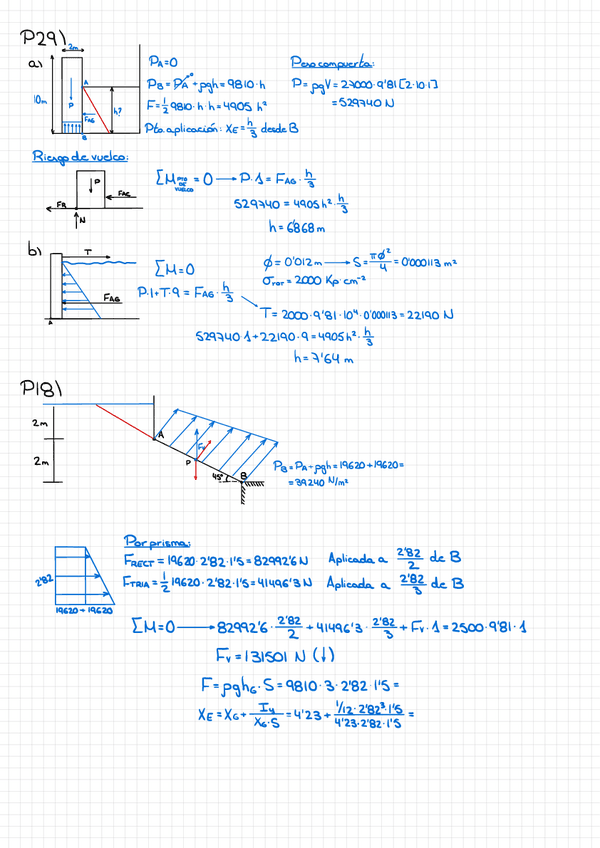 P29)
a)
2m
10m
A
P
FAG
h?
B
PA=0
PB = PA⁰ + ρgh = 9810·h
F = 1/2 9810·h·h = 4905 h²
Pto. aplicación: XE = h/3 desde B
Peso compuerta:
P = ρgV = 27000·9'81 [2·10·1]
= 529740 N
Riesgo de vuelco:
P
FAG
FR
N
ΣM PTO DE VUELCO = 0 → P·1 = FAG · h/3
529740 = 4905 h² · h/3
h = 6'868 m
b)
T
FAG
A
ΣM=0
P·1 + T·9 = FAG · h/3
ϕ = 0'012 m → S = πϕ²/4 = 0'000113 m²
σrot = 2000 Kp·cm⁻²
T = 2000·9'81·10⁴·0'000113 = 22190 N
529740·1 + 22190·9 = 4905 h² · h/3
h = 7'64 m
P18)
2m
2m
A
Fv
P
45º
B
PB = PA + ρgh = 19620 + 19620 =
= 39240 N/m²
2'82
19620 + 19620
Por prisma:
FRECT = 19620·2'82·1'5 = 82992'6 N Aplicada a 2'82/2 de B
FTRIA = 1/2 19620·2'82·1'5 = 41496'3 N Aplicada a 2'82/3 de B
ΣM=0 → 82992'6 · 2'82/2 + 41496'3 · 2'82/3 + Fv·1 = 2500·9'81·1
Fv = 131501 N (↓)
F = ρghG·S = 9810·3·2'82·1'5 =
XE = XG + Iy/XG·S = 4'23 + 1/12·2'82³·1'5/4'23·2'82·1'5 =